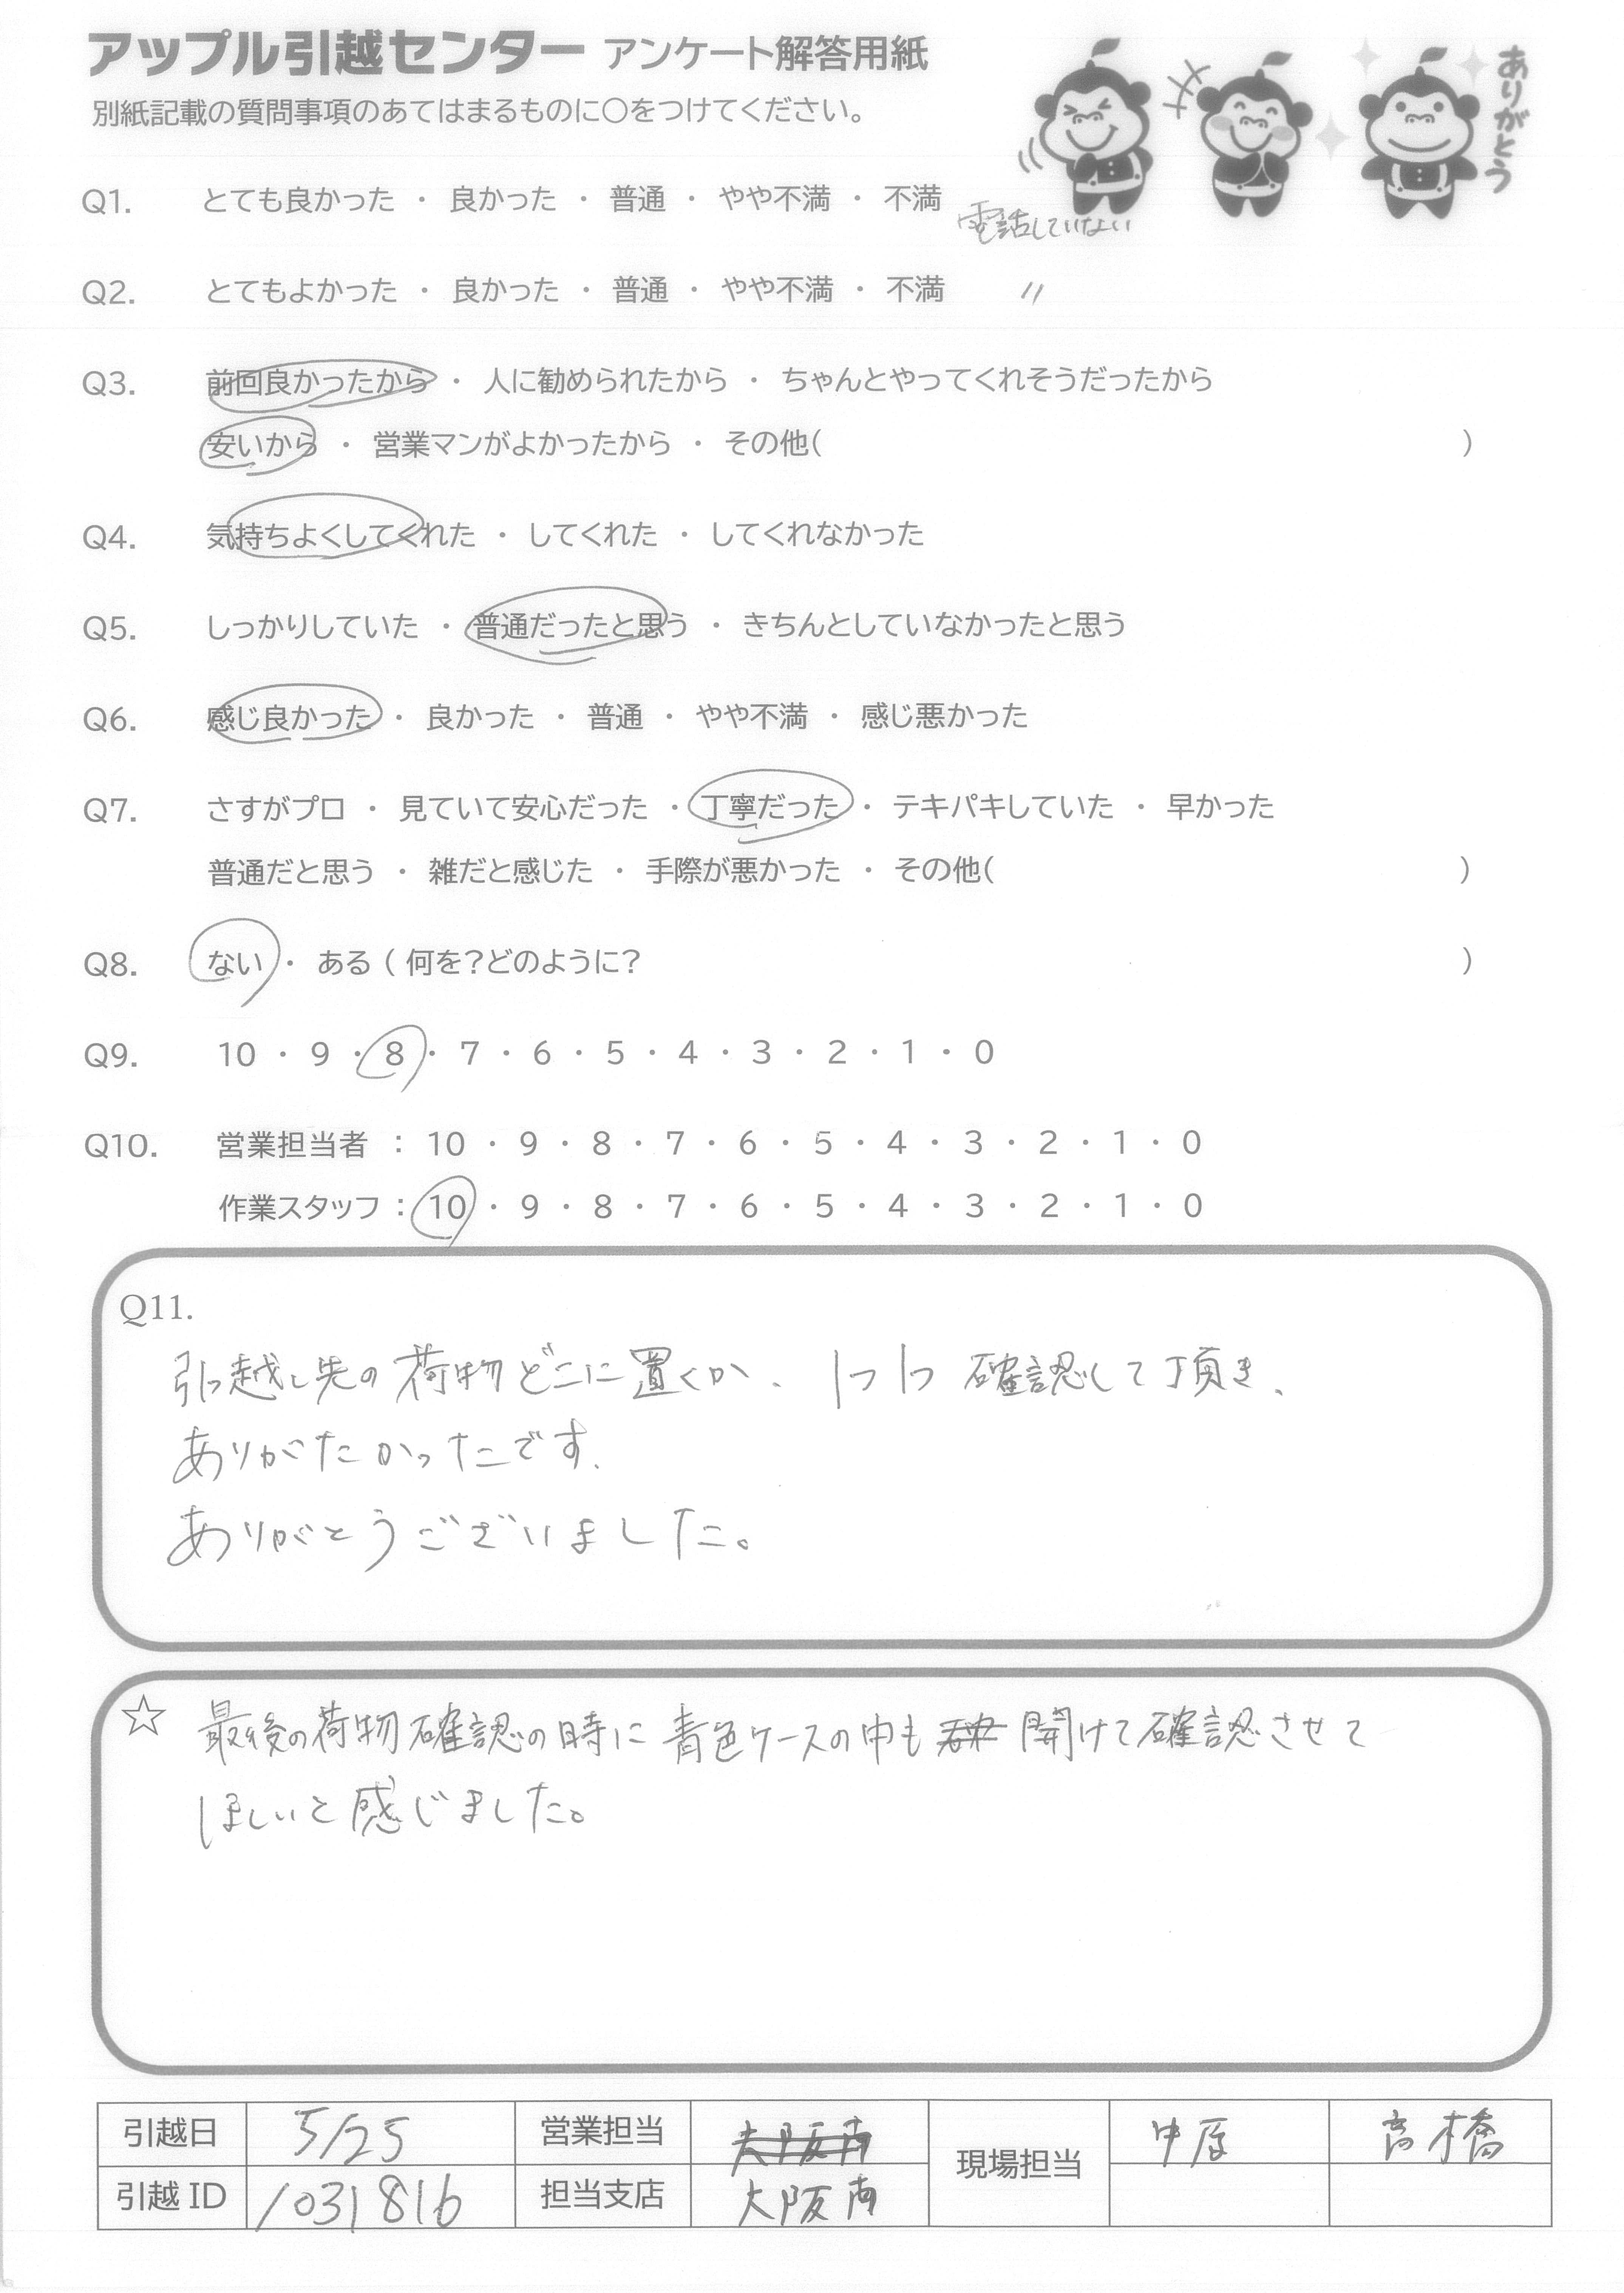 アップル引越センター アンケート解答用紙
別紙記載の質問事項のあてはまるものに○をつけてください。
ありがとう
Q1. とても良かった ・ 良かった ・ 普通 ・ やや不満 ・ 不満 電話していない
Q2. とてもよかった ・ 良かった ・ 普通 ・ やや不満 ・ 不満 〃
Q3. 前回良かったから ・ 人に勧められたから ・ ちゃんとやってくれそうだったから
安いから ・ 営業マンがよかったから ・ その他( )
Q4. 気持ちよくしてくれた ・ してくれた ・ してくれなかった
Q5. しっかりしていた ・ 普通だったと思う ・ きちんとしていなかったと思う
Q6. 感じ良かった ・ 良かった ・ 普通 ・ やや不満 ・ 感じ悪かった
Q7. さすがプロ ・ 見ていて安心だった ・ 丁寧だった ・ テキパキしていた ・ 早かった
普通だと思う ・ 雑だと感じた ・ 手際が悪かった ・ その他( )
Q8. ない ・ ある ( 何を?どのように? )
Q9. 10 ・ 9 ・ 8 ・ 7 ・ 6 ・ 5 ・ 4 ・ 3 ・ 2 ・ 1 ・ 0
Q10. 営業担当者 : 10 ・ 9 ・ 8 ・ 7 ・ 6 ・ 5 ・ 4 ・ 3 ・ 2 ・ 1 ・ 0
作業スタッフ : 10 ・ 9 ・ 8 ・ 7 ・ 6 ・ 5 ・ 4 ・ 3 ・ 2 ・ 1 ・ 0
Q11.
引っ越し先の荷物どこに置くか、1つ1つ確認して頂き、
ありがたかったです。
ありがとうございました。
☆ 最後の荷物確認の時に青色ケースの中も開けて確認させて
ほしいと感じました。
引越日 5/25 営業担当 大阪南 現場担当 中原 高橋
引越ID 1031816 担当支店 大阪南